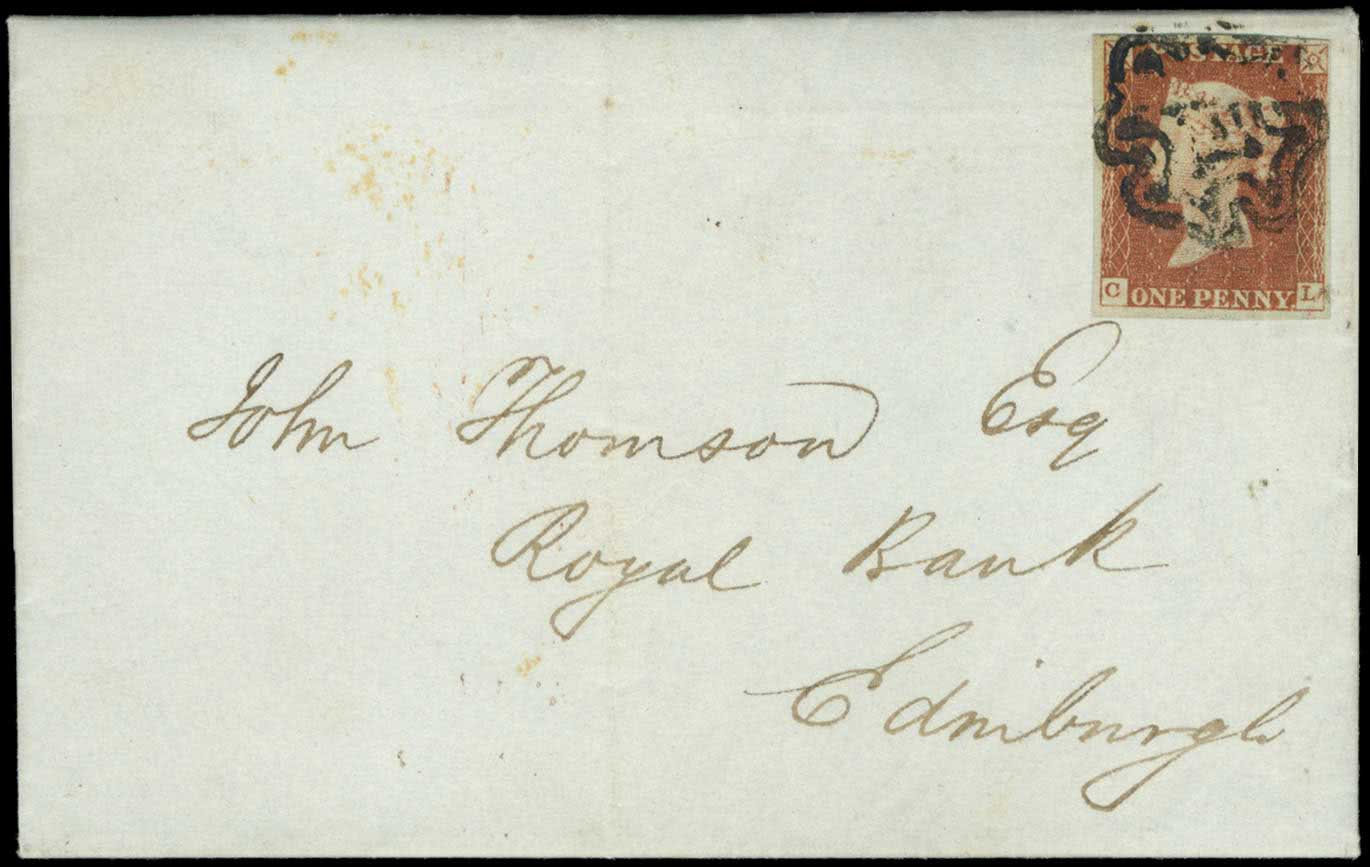 POSTAGE
C ONE PENNY. L
John Thomson Esq
Royal Bank
Edinburgh